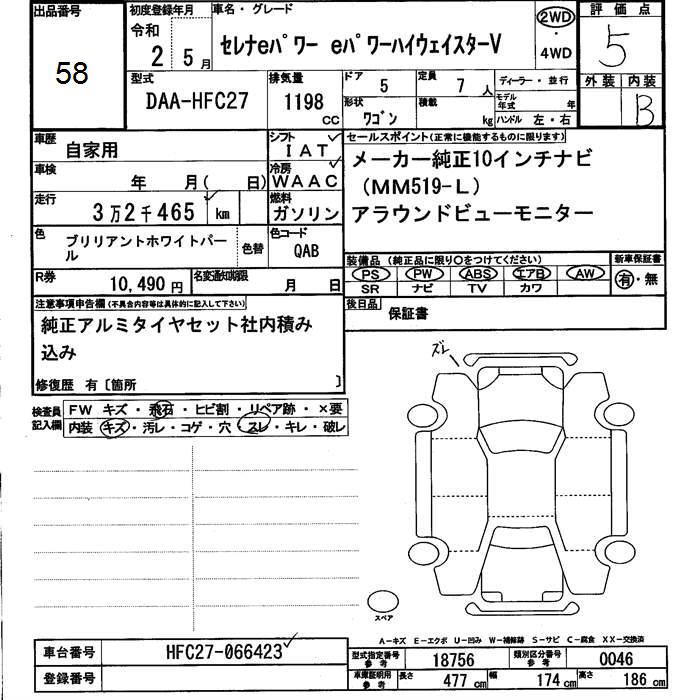 出品番号
58
初度登録年月
令和
2 5 月
車名・グレード
セレナeパワー eパワーハイウェイスターV
2WD
・
4WD
評価点
5
型式
DAA-HFC27
排気量
1198
cc
ドア 5
定員 7 人
形状 ワゴン
積載 kg
ディーラー・並行
モデル年式 年
ハンドル 左・右
外装 内装
B
車歴
自家用
シフト
IAT
車検
年 月( 日)
冷房
WAAC
走行
3万2千465 km
燃料
ガソリン
色
ブリリアントホワイトパール
色替
色コード
QAB
R券
10,490 円
名変通知期限
月 日
セールスポイント(正常に機能するものに限ります)
メーカー純正10インチナビ
(MM519-L)
アラウンドビューモニター
装備品(純正品に限り〇をつけてください)
PS PW ABS エアB AW
SR ナビ TV カワ
新車保証書
有・無
後日品
保証書
注意事項申告欄(不具合内容等は具体的に記入して下さい)
純正アルミタイヤセット社内積み
込み
修復歴 有〔箇所 〕
検査員
記入欄
FW キズ・飛石・ヒビ割・リペア跡・×要
内装 キズ・汚レ・コゲ・穴・スレ・キレ・破レ
ズレ
スペア
A-キズ E-エクボ U-凹み W-補修跡 S-サビ C-腐食 XX-交換済
車台番号
HFC27-066423
登録番号
型式指定番号
参考
18756
類別区分番号
参考
0046
車庫証明用
参考
長さ 477 cm
幅 174 cm
高さ 186 cm